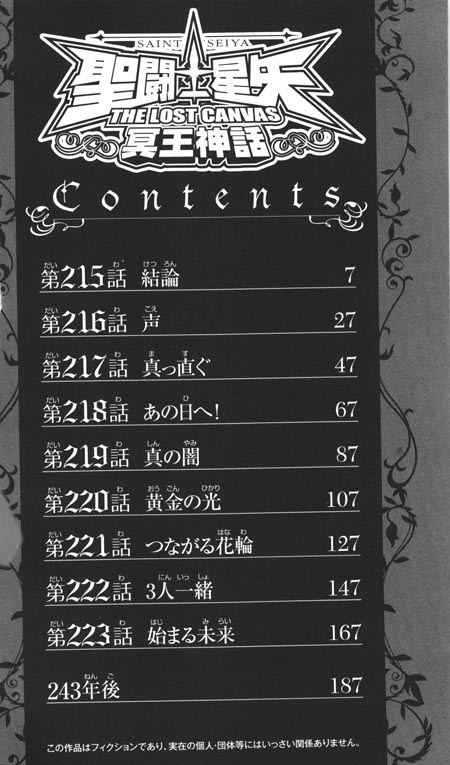 SAINT SEIYA
聖闘士星矢
THE LOST CANVAS
冥王神話
Contents
第215話 結論 7
第216話 声 27
第217話 真っ直ぐ 47
第218話 あの日へ! 67
第219話 真の闇 87
第220話 黄金の光 107
第221話 つながる花輪 127
第222話 3人一緒 147
第223話 始まる未来 167
243年後 187
この作品はフィクションであり、実在の個人・団体等にはいっさい関係ありません。